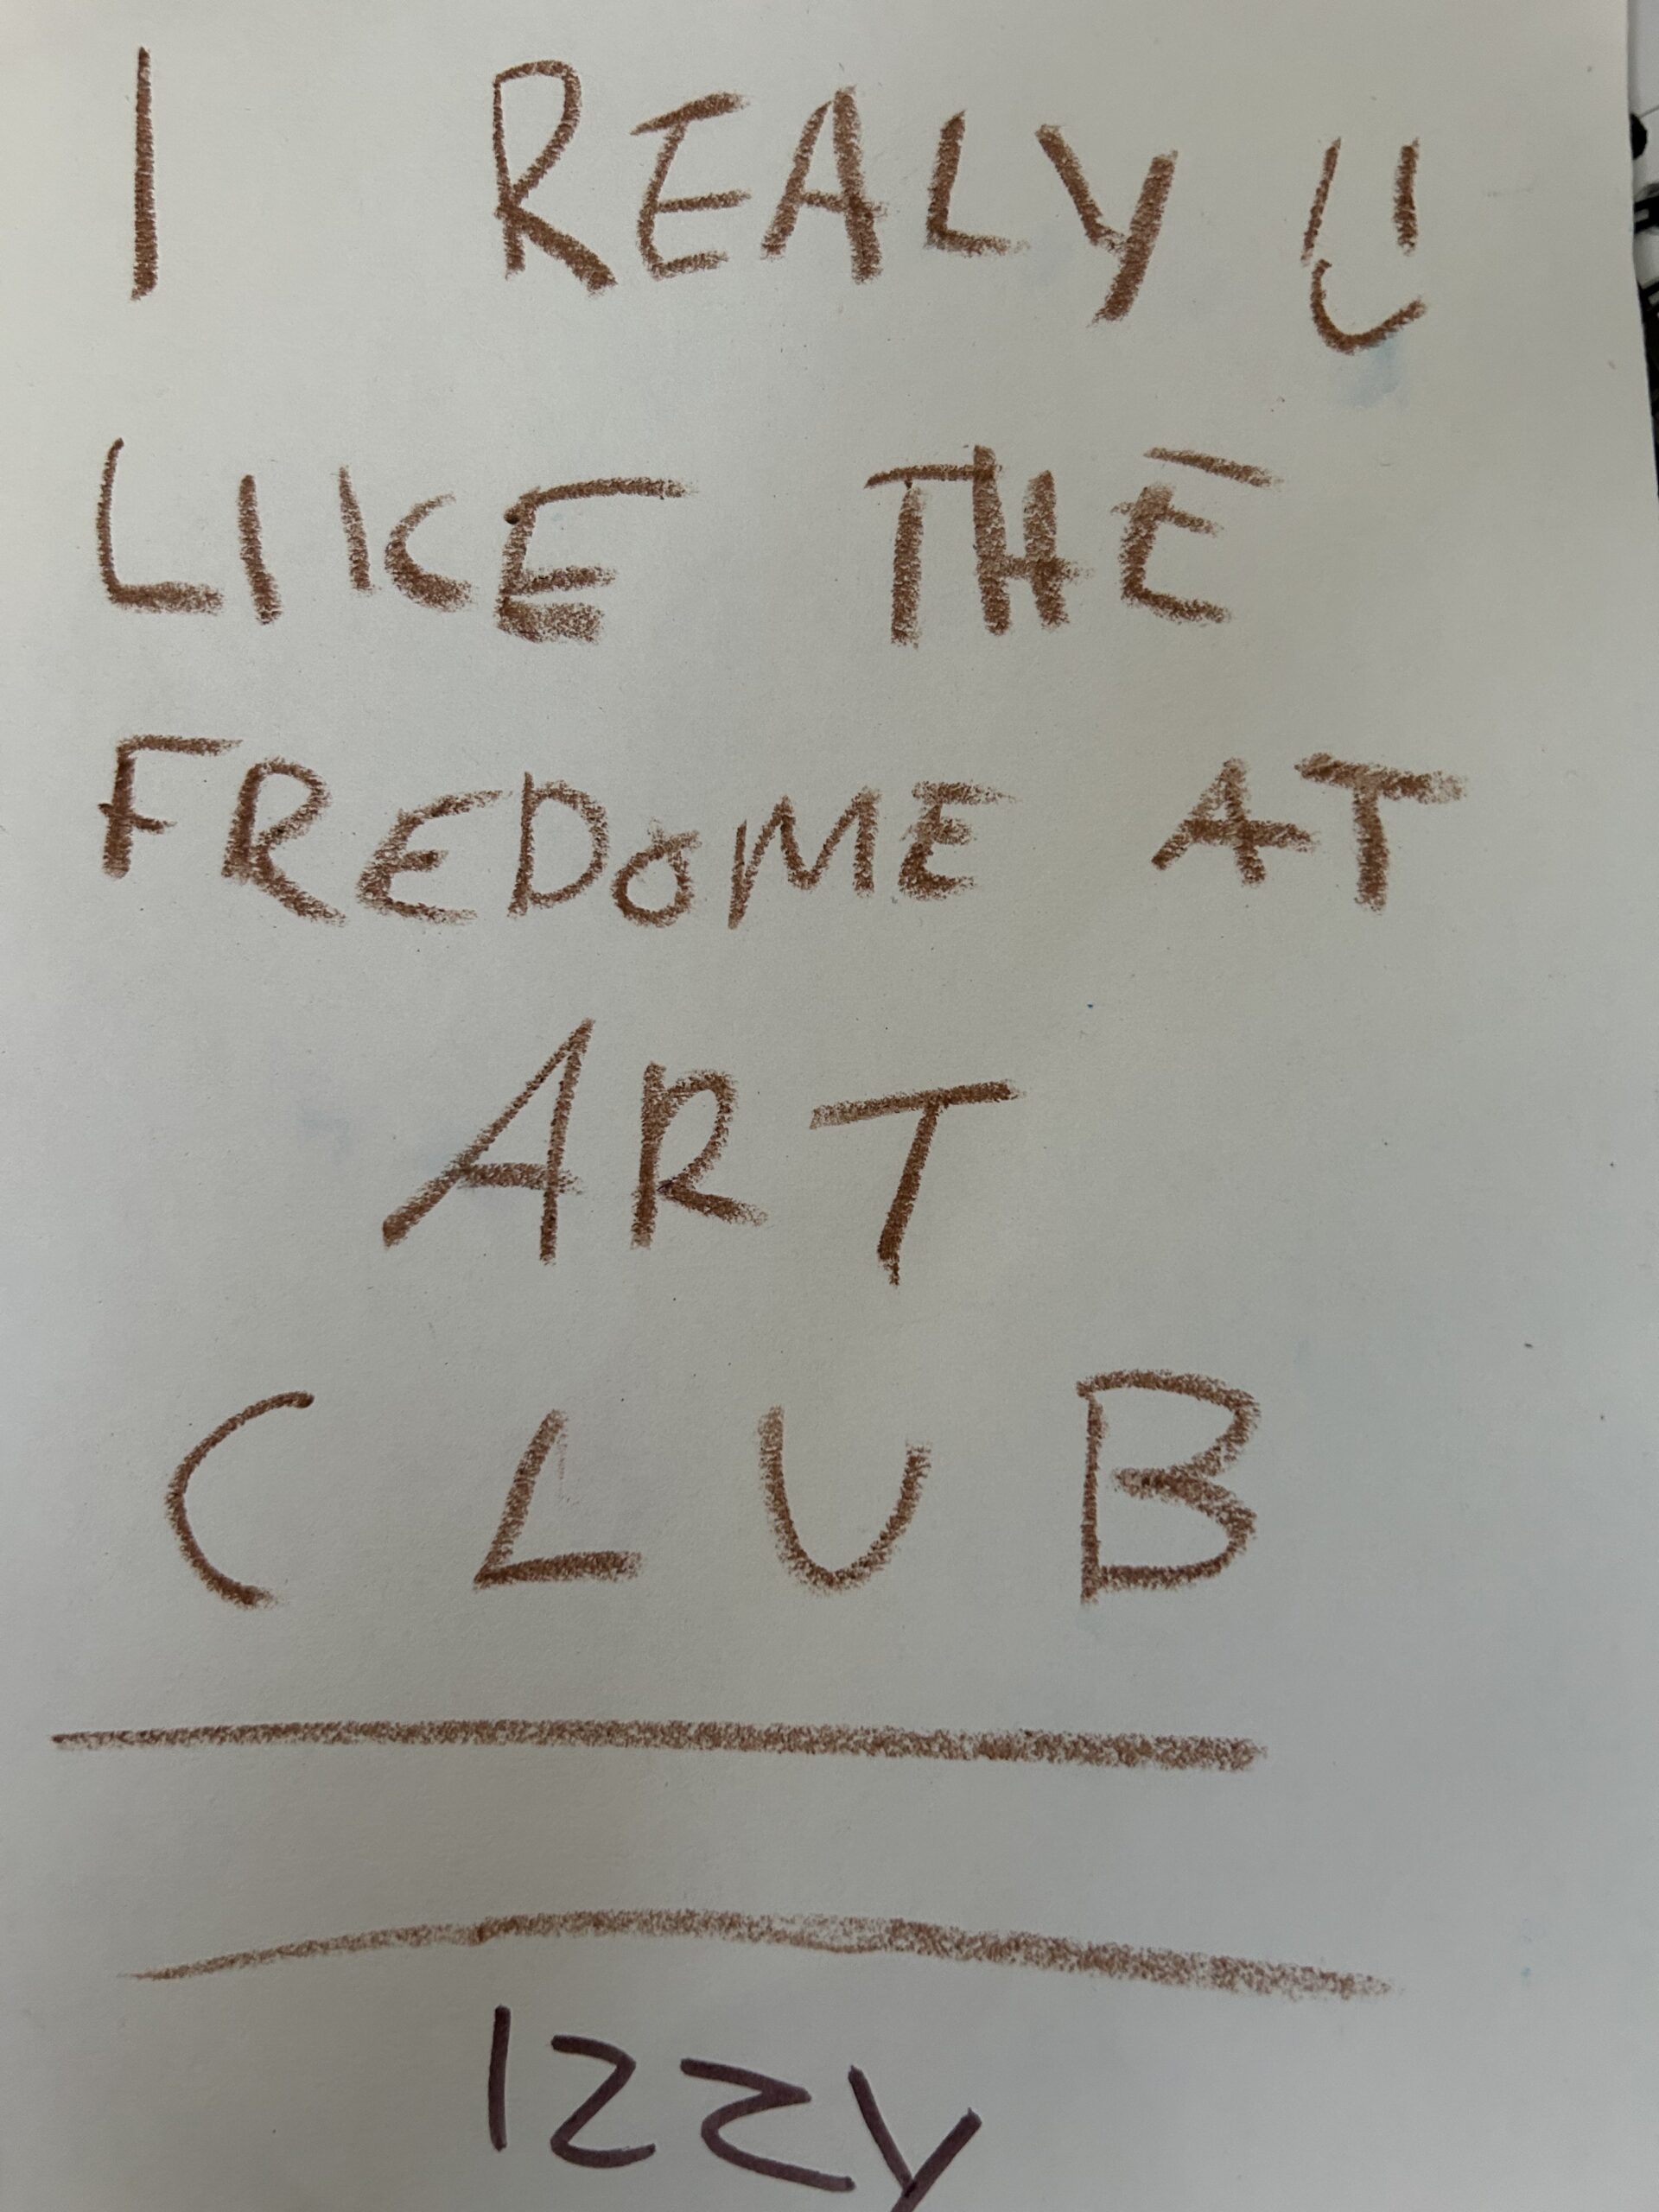 I REALY
LIKE THE
FREDOME AT
ART
CLUB
IZZY